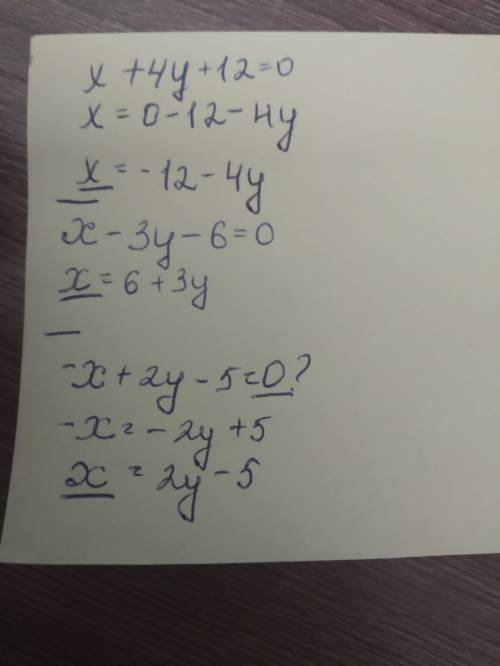 x + 4y + 12 = 0
x = 0 - 12 - 4y
x = - 12 - 4y
x - 3y - 6 = 0
x = 6 + 3y
-x + 2y - 5 = 0?
-x = - 2y + 5
x = 2y - 5